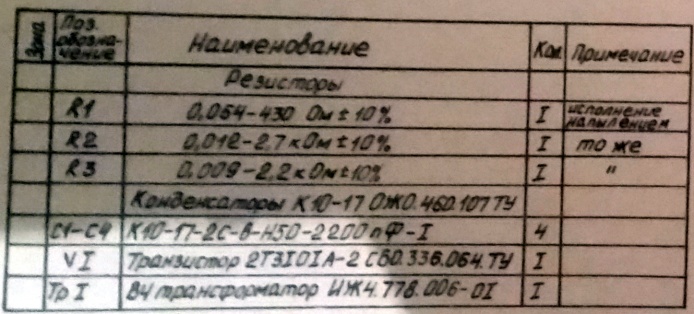 Зона Поз. обозна-чение Наименование Кол. Примечание
Резисторы
R1 0,064-430 Ом ± 10% I исполнение напылением
R2 0,012-2,7 кОм ± 10% I то же
R3 0,009-2,2 кОм ± 10% I "
Конденсаторы К10-17 ОЖО.460.107 ТУ
С1-С4 К10-17-2С-в-Н50-2200 пФ-I 4
VI Транзистор 2Т3101А-2 СБ0.336.064.ТУ I
Тр I ВЧ трансформатор ИЖ4.778.006-01 I